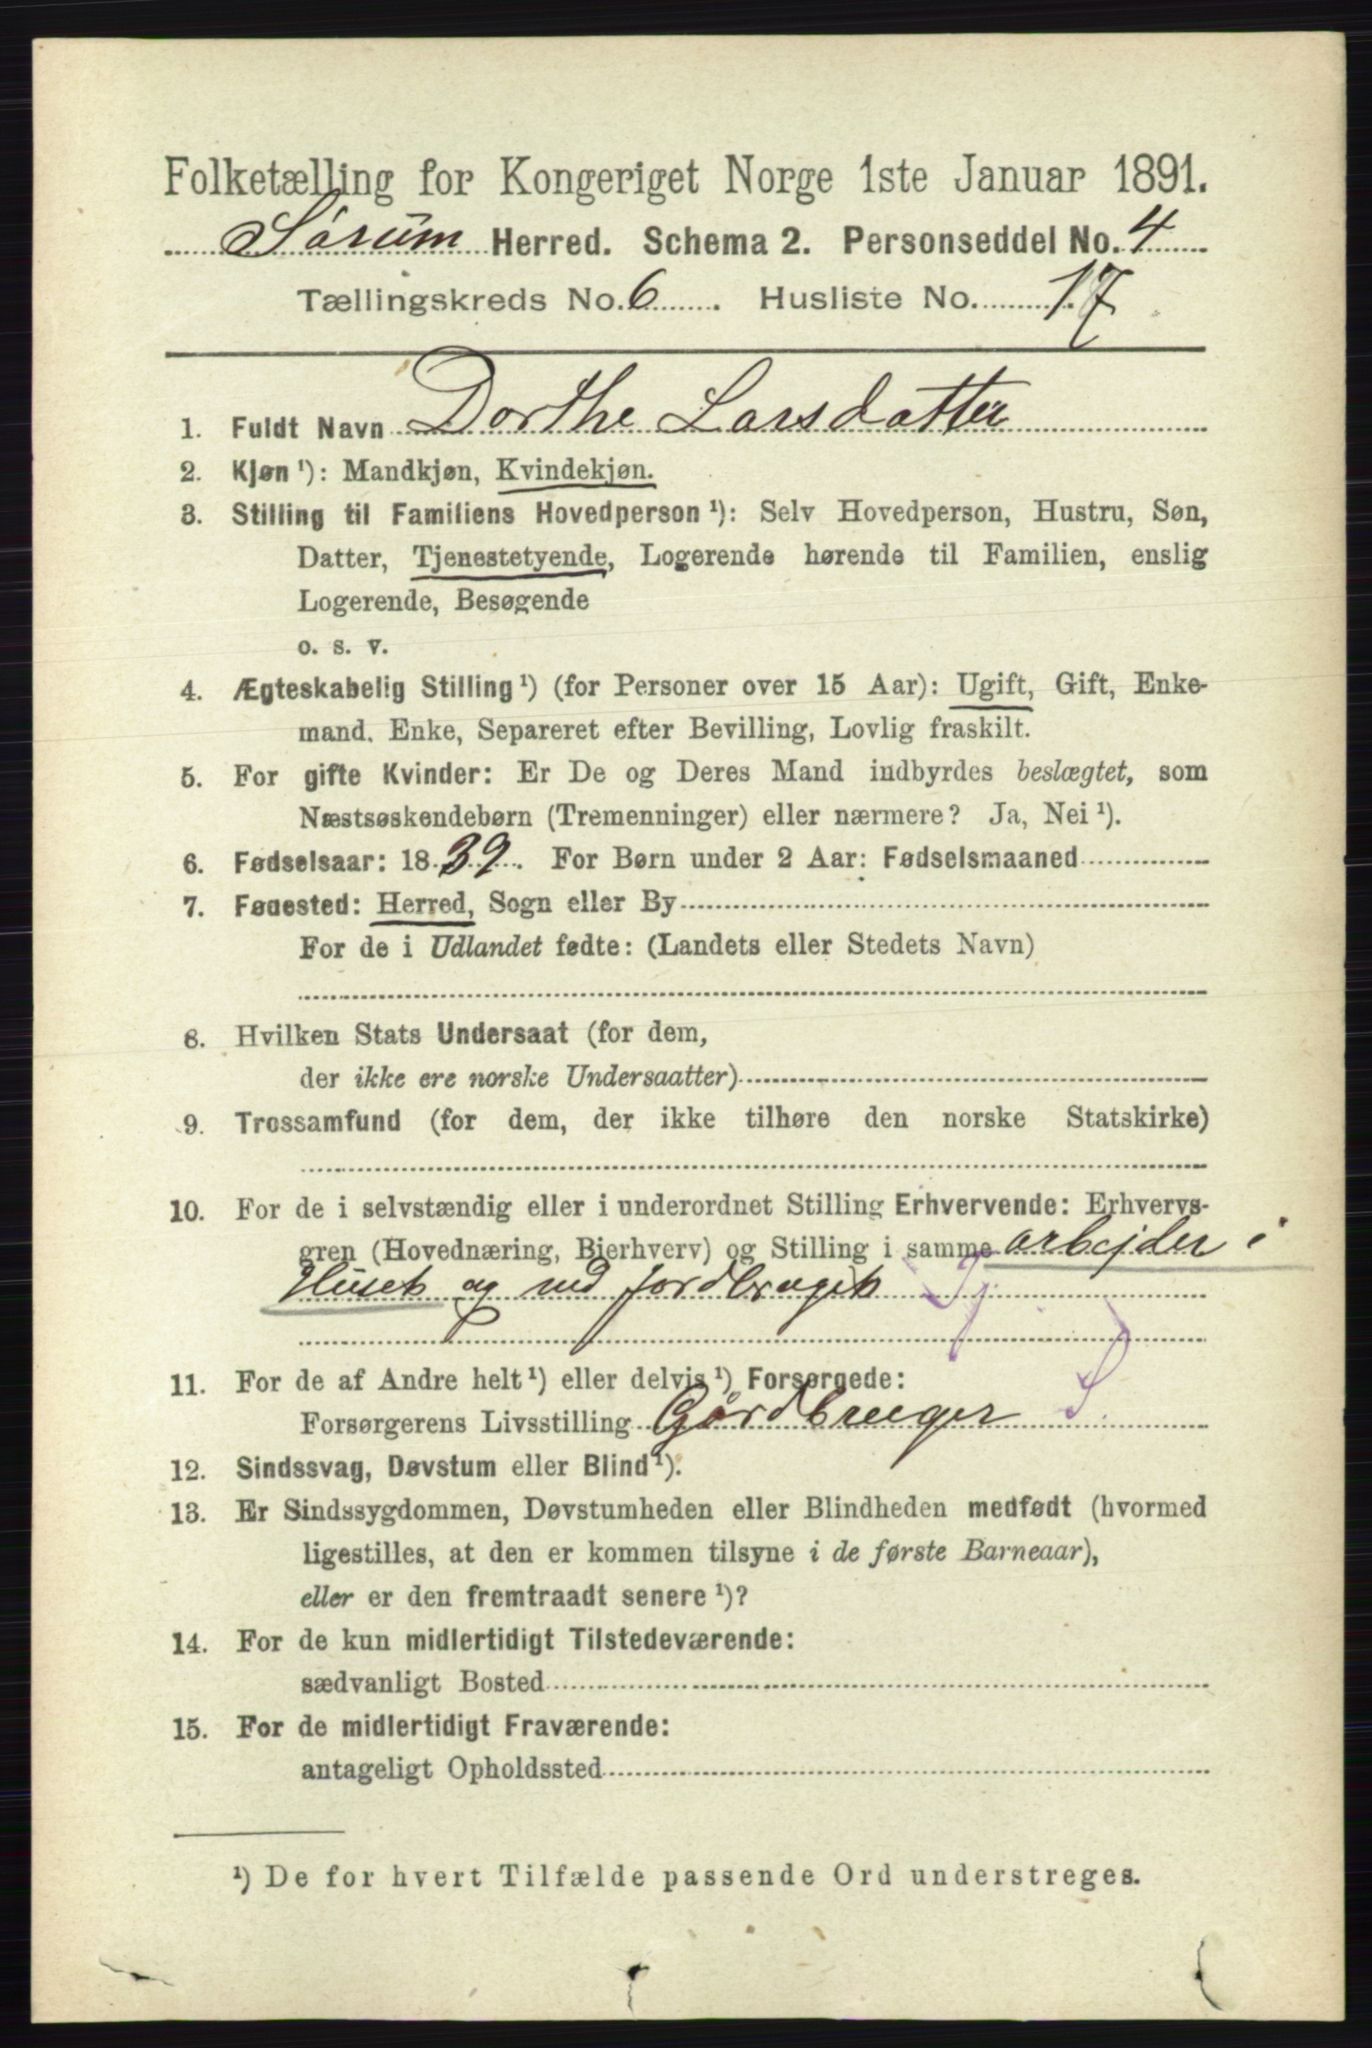 Folketælling for Kongeriget Norge 1ste Januar 1891.
Sørum Herred. Schema 2. Personseddel No. 4
Tællingskreds No. 6. Husliste No. 17
1. Fuldt Navn Dorthe Larsdatter
2. Kjøn ¹): Mandkjøn, Kvindekjøn.
3. Stilling til Familiens Hovedperson ¹): Selv Hovedperson, Hustru, Søn,
Datter, Tjenestetyende, Logerende hørende til Familien, enslig
Logerende, Besøgende
o. s. v.
4. Ægteskabelig Stilling ¹) (for Personer over 15 Aar): Ugift, Gift, Enke-
mand. Enke, Separeret efter Bevilling, Lovlig fraskilt.
5. For gifte Kvinder: Er De og Deres Mand indbyrdes beslægtet, som
Næstsøskendebørn (Tremenninger) eller nærmere? Ja, Nei ¹).
6. Fødselsaar: 1839. For Børn under 2 Aar: Fødselsmaaned
7. Fødested: Herred, Sogn eller By
For de i Udlandet fødte: (Landets eller Stedets Navn)
8. Hvilken Stats Undersaat (for dem,
der ikke ere norske Undersaatter)
9. Trossamfund (for dem, der ikke tilhøre den norske Statskirke)
10. For de i selvstændig eller i underordnet Stilling Erhvervende: Erhvervs-
gren (Hovednæring, Bierhverv) og Stilling i samme arbejder i
Huset og ved jordbruget Tj.
11. For de af Andre helt ¹) eller delvis ¹) Forsørgede:
Forsørgerens Livsstilling Gårdbruger S.
12. Sindssvag, Døvstum eller Blind ¹).
13. Er Sindssygdommen, Døvstumheden eller Blindheden medfødt (hvormed
ligestilles, at den er kommen tilsyne i de første Barneaar),
eller er den fremtraadt senere ¹)?
14. For de kun midlertidigt Tilstedeværende:
sædvanligt Bosted
15. For de midlertidigt Fraværende:
antageligt Opholdssted
¹) De for hvert Tilfælde passende Ord understreges.